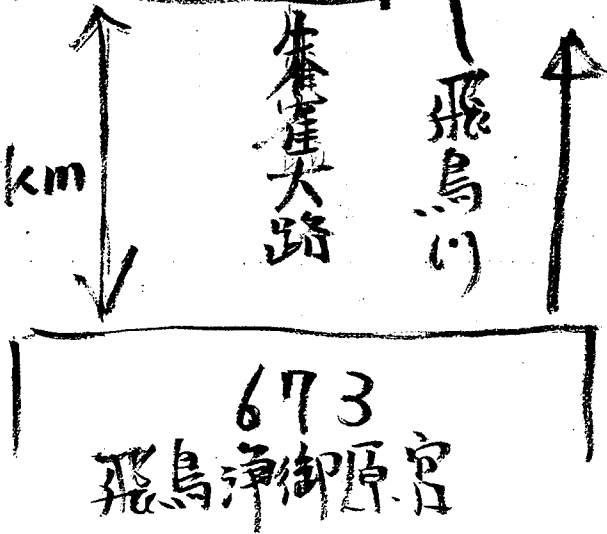 km
朱雀大路
飛鳥川
673
飛鳥浄御原宮